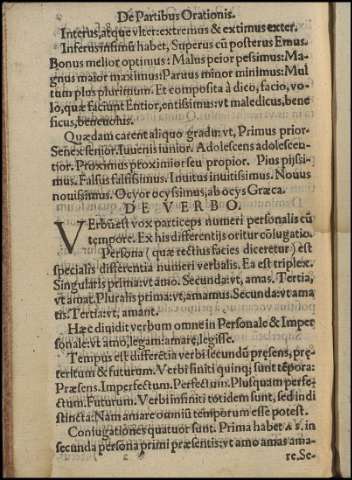 De Partibus Orationis.
Interus, atque vlter: extremus & extimus exter.
Inferus infimũ habet, Superus cũ posterus Emus.
Bonus melior optimus: Malus peior pessimus: Ma-
gnus maior maximus: Paruus minor minimus: Mul
tum plus plurimum. Et composita à dico, facio, vo-
lo, quæ faciunt Entior, entissimus: vt maledicus, bene
ficus, beneuolus.
Quædam carent aliquo gradu: vt, Primus prior.
Senex senior. Iuuenis iunior. Adolescens adolescen-
tior. Proximus proximior seu propior. Pius pijssi-
mus. Falsus falsissimus. Inuitus inuitissimus. Nouus
nouissimus. Ocyor ocyssimus, ab ocys Græca.
DE VERBO.
VErbũ est vox particeps numeri personalis cũ
tempore. Ex his differentijs oritur coiugatio.
Persona (quæ rectius facies diceretur) est
specialis differentia numeri verbalis. Ea est triplex.
Singularis prima: vt amo. Secunda: vt, amas. Tertia,
vt amat. Pluralis prima: vt, amamus. Secunda: vt ama
tis. Tertia: vt, amant.
Hæc diuidit verbum omne in Personale & Imper
sonale: vt amo, legam: amare, legisse.
Tempus est differẽtia verbi secundũ pręsens, prę-
teritum & futurum. Verbi finiti quinq; sunt tẽpora:
Præsens. Imperfectum. Perfectum. Plusquam perfe-
ctum. Futurum. Verbi infiniti totidem sunt, sed indi
stincta: Nam amare omniũ temporum esse potest.
Coniugationes quatuor sunt. Prima habet AS. in
secunda persona primi præsentis: vt amo amas ama-
re. Se-